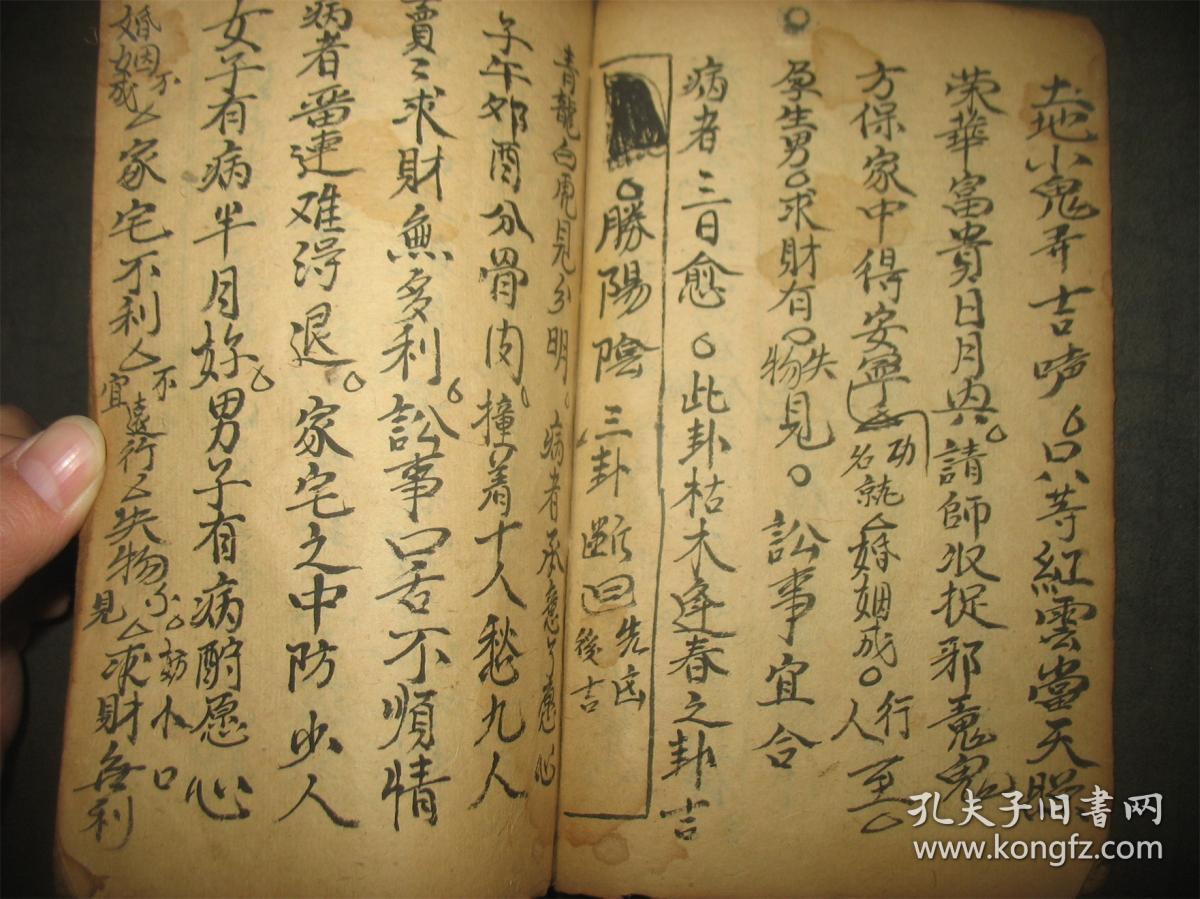 土地小鬼弄吉声。只等紅雲當天照
荣華富貴日月興。請師收捉邪魔鬼
方保家中得安寧 功名就 婚姻成。行人至。
孕生男。求財有。失物見。訟事宜合
病者三日愈。此卦枯木逢春之卦吉
勝陽陰三卦斷曰先凶後吉
青龍白虎見分明。病者承急
子午卯酉分骨肉。撞着十人愁九人
賣買求財無多利。訟事口舌不順情
病者留連难得退。家宅之中防少人
女子有病半月好。男子有病酧愿心
婚姻不成 家宅不利 不宜遠行 失物不見。訪小口 求財無利
孔夫子旧书网
www.kongfz.com